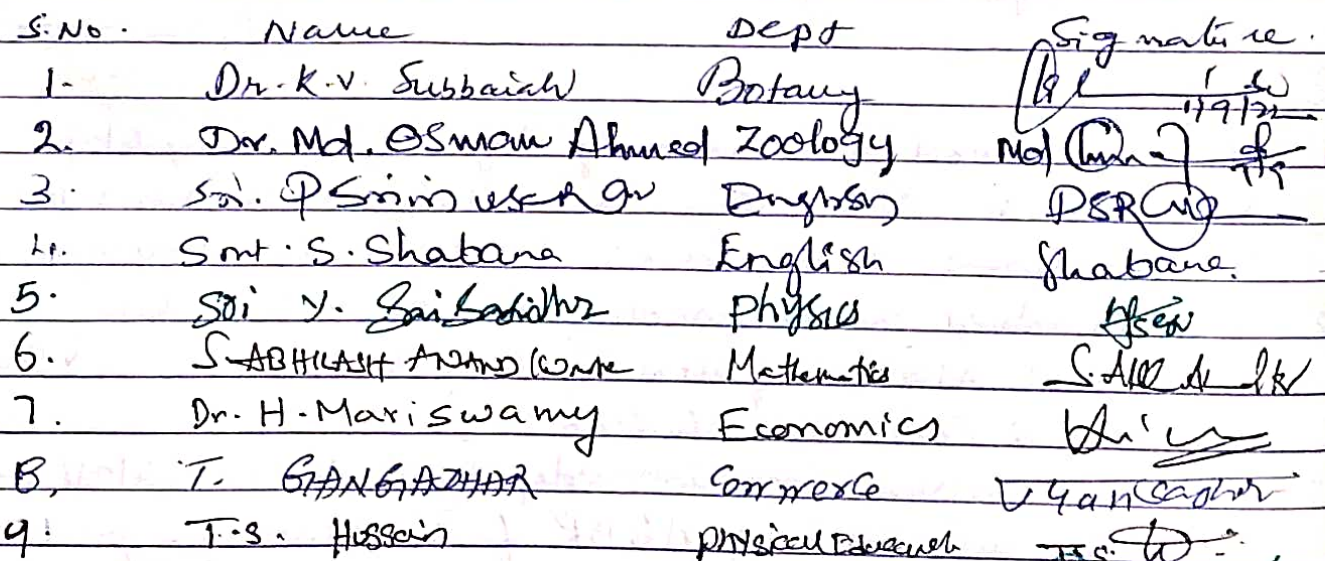 S.No. Name Dept Signature.
1- Dr. K.V. Subbaiah Botany 1/9/22
2. Dr. Md. Osman Ahmed Zoology Md
3. Sri. P English DSR
4. Smt. S. Shabana English Shabana.
5. Sri Y. Physics
6. S. ABHILASH ANAND Mathematics
7. Dr. H. Mariswamy Economics
8, T. GANGADHAR Commerce
9. T.S. Hussain physical Education T.S.